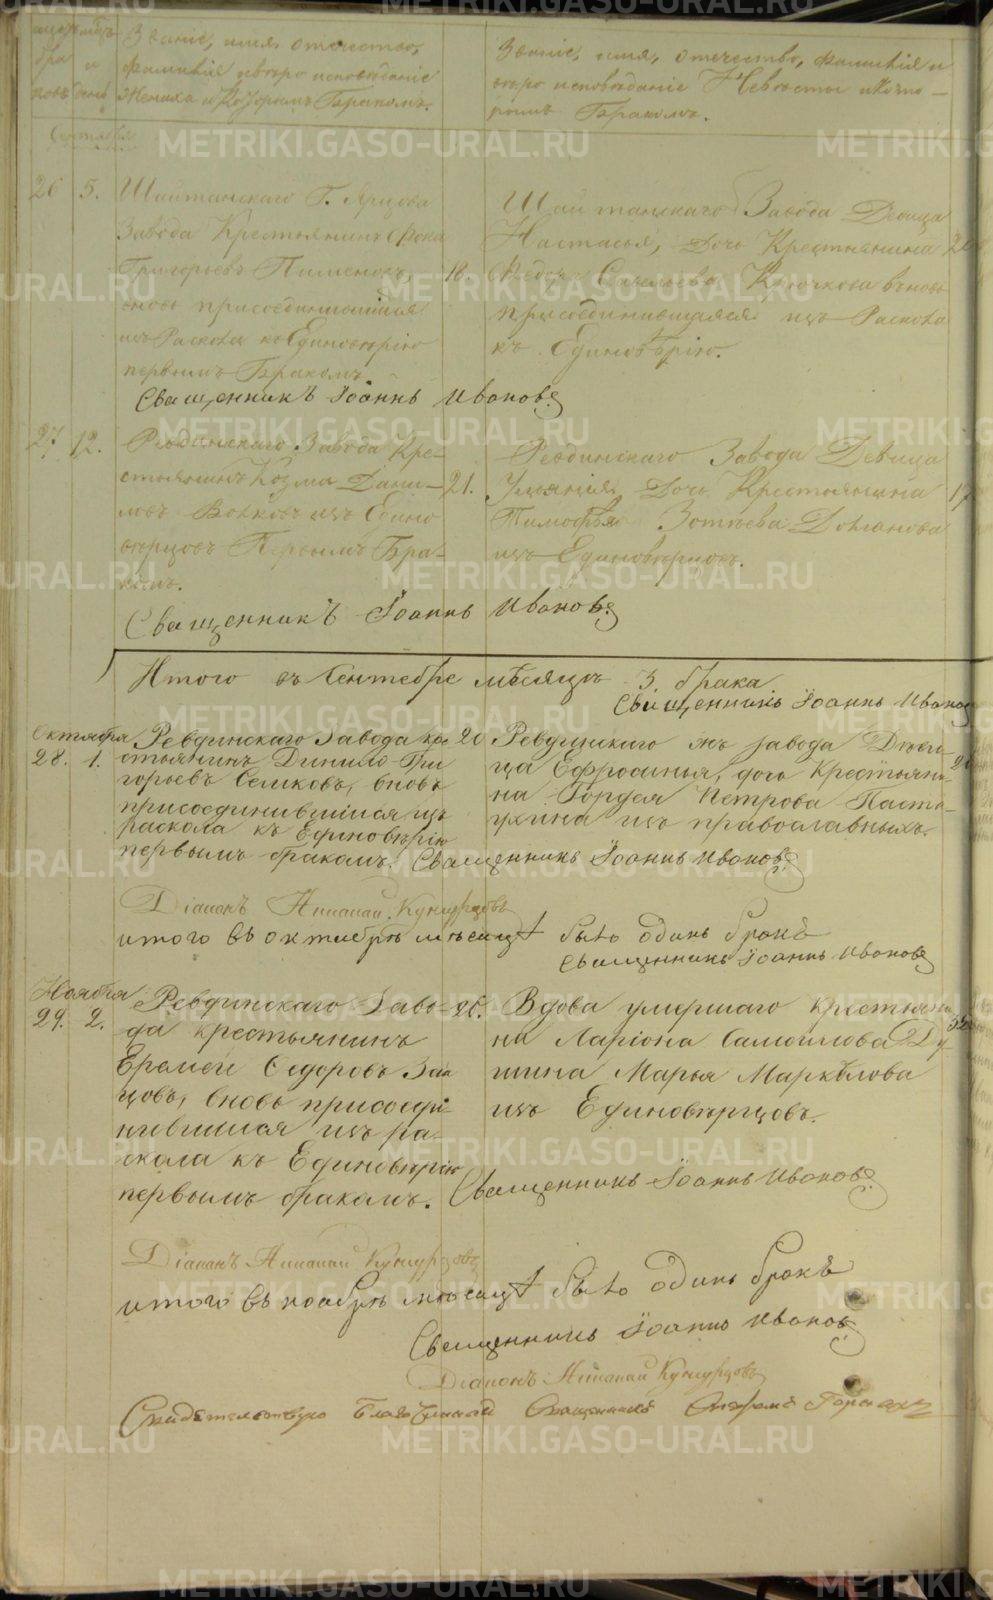 Званіе, имя, отечество,
фамилія и вѣро исповѣданіе
Жениха и Которымъ Бракомъ.
Званіе, имя, отечество, фамилія и
вѣро исповѣданіе Невѣсты и Кото-
рымъ Бракомъ.
Сентября
26 5. Шайтанскаго Г. Ярцова
Завода Крестьянинъ Фока
Григорьевъ Пименовъ, 18.
вновь присоединившійся
изъ Раскола къ Единовѣрію
первымъ Бракомъ.
Шайтанскаго Завода Девица
Настасья, Дочь Крестьянина
Федора Савельева Крючкова вновь
присоединившаяся изъ Раскола
къ Единовѣрію.
Священникъ Іоаннъ Ивановъ
27 12. Ревдинскаго Завода Кре-
стьянинъ Козма Дани- 21.
ловъ Волковъ изъ Едино
верцовъ Первымъ Бра-
комъ.
Ревдинскаго Завода Девица
Улианія Дочь Крестьянина 17
Тимофѣя Зотѣева Долганова
изъ Единовѣрцовъ.
Священникъ Іоаннъ Ивановъ
Итого въ Сентебре мѣсяцѣ 3 брака
Священникъ Іоаннъ Ивановъ
Октября
28. 1. Ревдинскаго Завода кре 20
стьянинъ Данило Гри
горьевъ Селиковъ, вновь
присоединившійся изъ
раскола къ Единовѣрію
первымъ бракомъ.
Ревдинскаго жъ завода Дѣви-
ца Ефросинья, дочь Крестьяни-
на Гордея Петрова Пасту-
хина изъ православныхъ.
Священникъ Іоаннъ Ивановъ
Діаконъ Николай Кунгурцовъ
итого въ октябрѣ мѣсяцѣ было одинъ бракъ
Священникъ Іоаннъ Ивановъ
Ноября
29. 2. Ревдинскаго Заво- 25.
да крестьянинъ
Еремей Сидоровъ Зай
цовъ, вновь присоеди
нившійся изъ ра-
скола къ Единовѣрію
первымъ бракомъ.
Вдова умершаго крестьяни
на Ларіона Самойлова Ду-
шина Марья Маркѣлова
изъ Единовѣрцовъ.
Священникъ Іоаннъ Ивановъ
Діаконъ Николай Кунгурцовъ
итого въ ноябрѣ мѣсяцѣ было одинъ бракъ
Священникъ Іоаннъ Ивановъ
Діаконъ Николай Кунгурцовъ
Свидетельствую Благочинный Священникъ
METRIKI.GASO-URAL.RU